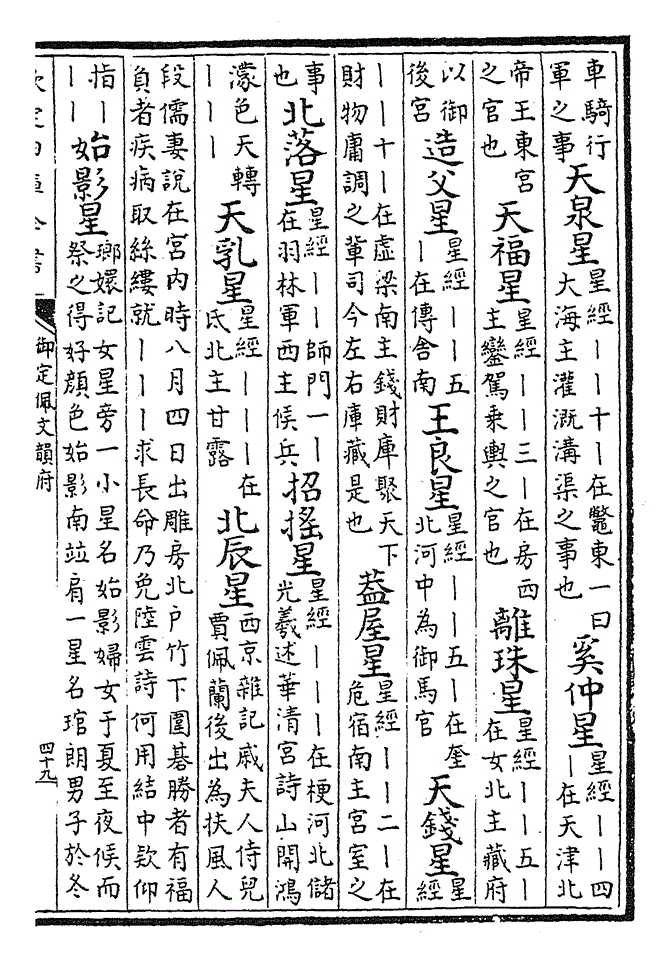 車騎行軍之事 天泉星 星經丨丨十丨在鼈東一曰大海主灌溉溝渠之事也 奚仲星 星經丨丨四丨在天津北
帝王東宮之官也 天福星 星經丨丨三丨在房西主鑾駕乘輿之官也 離珠星 星經丨丨五丨在女北主藏府
以御後宮 造父星 星經丨丨五丨在傳舎南 王良星 星經丨丨五丨在奎北河中為御馬官 天錢星 星經
丨丨十丨在虚梁南主錢財庫聚天下財物庸調之軰司今左右庫藏是也 葢屋星 星經丨丨二丨在危宿南主宮室之
事也 北落星 星經丨丨師門一丨在羽林軍西主候兵 招搖星 星經丨丨丨在梗河北儲光羲述華清宮詩山開鴻
濛色天轉丨丨丨 天乳星 星經丨丨丨在氐北主甘露 北辰星 西京雜記戚夫人侍兒賈佩蘭後出為扶風人
段儒妻說在宮内時八月四日出雕房北户竹下圍碁勝者有福負者疾病取絲縷就丨丨丨求長命乃免陸雲詩何用結中欵仰
指丨丨丨 始影星 瑯嬛記女星旁一小星名始影婦女于夏至夜候而祭之得好顔色始影南竝肩一星名琯朗男子於冬
欽定四庫全書
御定佩文韻府
四十九